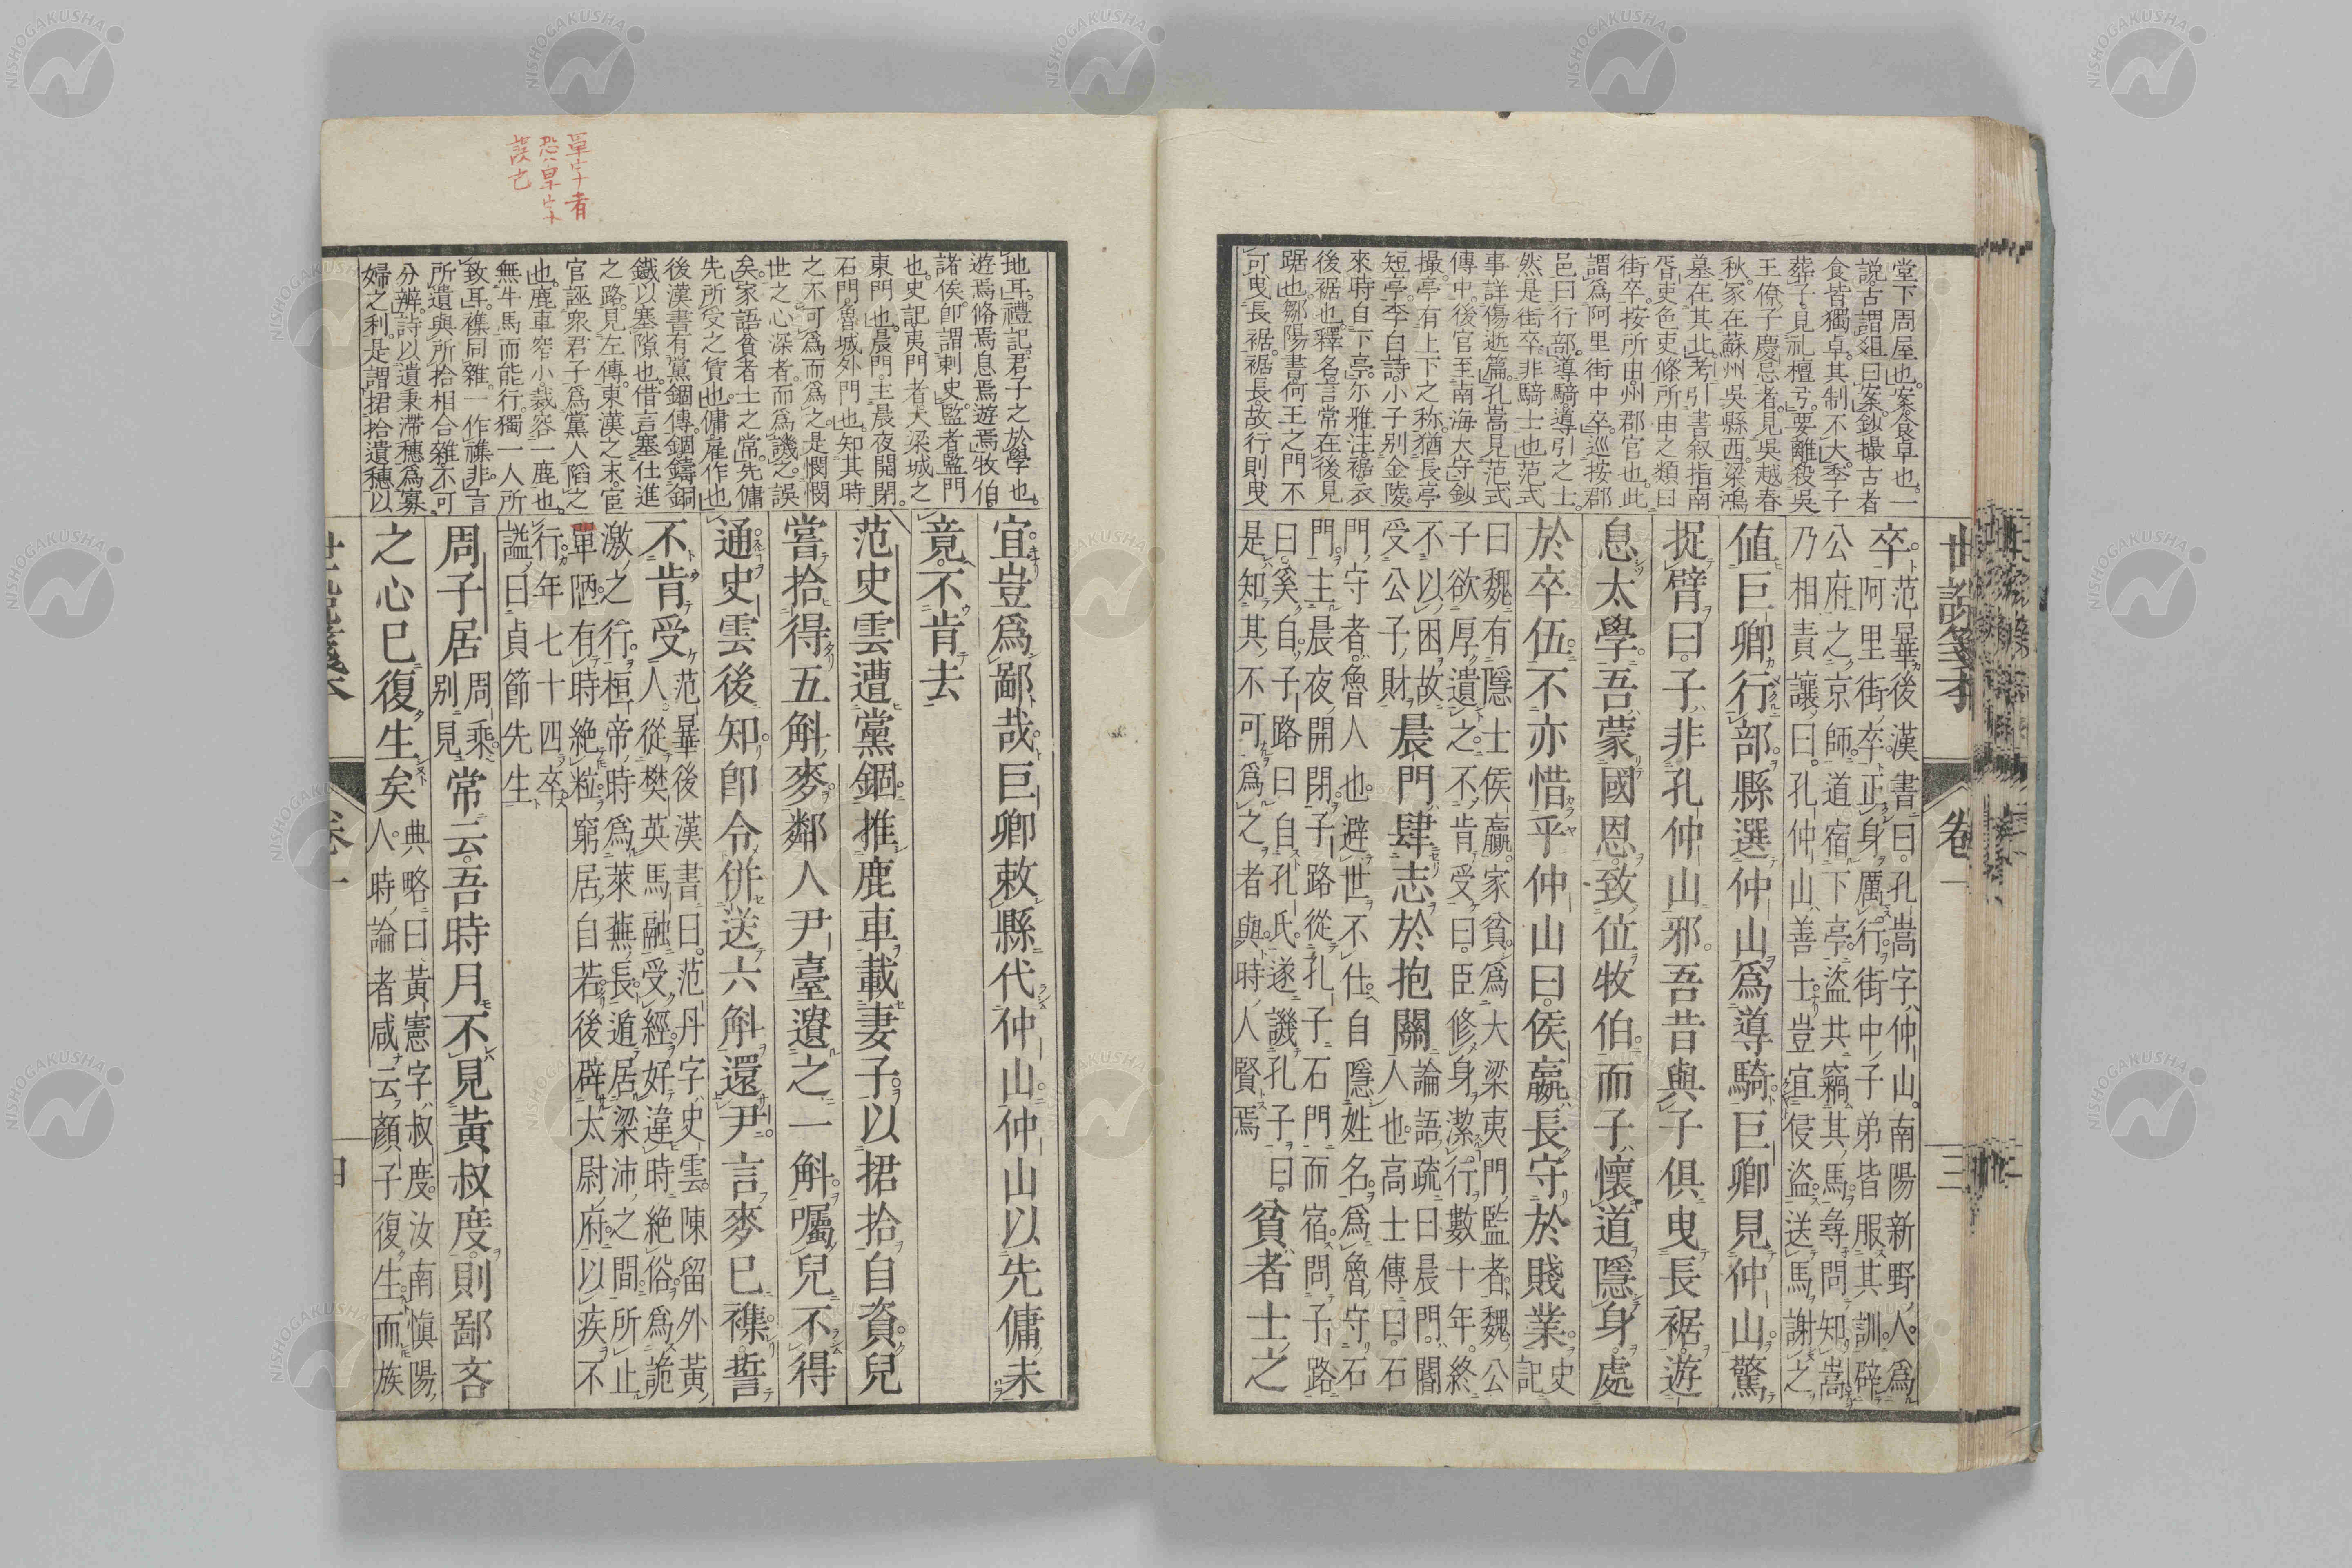 堂下周屋也。案食卓也。一
說。古謂爼曰案。鈔撮。古者
食皆獨卓。其制不大。季子
葬子見礼檀弓。要離殺吳
王僚子慶忌者。見吳越春
秋。冢在蘇州吳縣西。梁鴻
墓在其北。考引書叙指南
胥吏色吏條所由之類曰
街卒。按所由州郡官也。此
謂爲阿里街中卒。巡按郡
邑曰行部。導騎導引之士。
然是街卒。非騎士也。范式
事詳傷逝篇。孔嵩見范式
傳中。後官至南海大守。鈔
撮。亭有上下之称。猶長亭
短亭。李白詩。小子别金陵。
來時白下亭。尓雅注。裾。衣
後裾也。釋名。言常在後見
踞也。鄒陽書。何王之門不
可曳長裾。裾長。故行則曳
世說箋本
卷一
三
卒。范畢後漢書曰。孔嵩字仲山。南陽新野人。爲
阿里街卒。正身厲行。街中子弟皆服其訓。辟
公府。之京師。道宿下亭。盜共竊其馬。尋問知嵩
乃相責讓曰。孔仲山善士。豈宜侵盜。送馬謝之
値巨卿行部縣選仲山爲導騎巨卿見仲山驚
捉臂曰。子非孔仲山邪。吾昔與子俱曳長裾遊
息太學。吾蒙國恩。致位牧伯。而子懷道隱身。處
於卒伍。不亦惜乎。仲山曰。侯嬴長守於賤業。史記
曰魏有隱士侯嬴。家貧。爲大梁夷門監者。魏公
子欲厚遺之。不肯受曰。臣修身潔行數十年。終
不以困故受公子財。晨門肆志於抱關。論語疏曰晨門。閽
人也。高士傳曰。石
門守者。魯人也。避世不仕。自隱姓名。爲魯守石
門。主晨夜開閉。子路從孔子。石門而宿。問子路
曰。奚自。子路曰。自孔氏。遂譏孔子曰。
是知其不可爲之者與。時人賢焉。貧者士之
地耳。禮記。君子之於學也。
遊焉脩焉息焉遊焉。牧伯。
諸侯。卽謂刺史。監者。監門
也。史記夷門者大梁城之
東門也。晨門。主晨夜開閉。
石門。魯城外門也。知其時
之不可爲而爲之。是憫憫
世之心深者。而爲譏之誤
矣。家語貧者士之常。先傭
先所受之賃也。傭雇作也
後漢書有黨錮傳。錮鑄銅
鐵以塞隙也。借言塞仕進
之路。見左傳。東漢之末。宦
官誣衆君子爲黨人陷之
也。鹿車窄小。裁容一鹿也。
無牛馬而能行。獨一人所
致耳。襍同雜。一作𧝓非。言
所遺與所拾相合雜。不可
分辨。詩以遺秉滯穗爲寡
婦之利。是謂捃拾遺穗以
宜豈爲鄙哉。巨卿敕縣代仲山。仲山以先傭未
竟。不肯去
范史雲遭黨錮。推鹿車載妻子。以捃拾自資。兒
嘗拾得五斛麥。鄰人尹臺遺之一斛。囑兒不得
通。史雲後知。卽令併送六斛還尹。言麥已襍。誓
不肯受。范畢後漢書曰。范丹字史雲。陳留外黃
人。從樊英馬融受經。好違時絶俗。爲詭
激之行。桓帝時爲萊蕪長。遁居梁沛之間。所止
單陋。有時絶粒。窮居自若。後辟太尉府。以疾不
行。年七十四卒。
謚曰貞節先生
周子居周乘。别見。常云。吾時月不見黃叔度。則鄙吝
之心已復生矣。典略曰。黃憲字叔度。汝南愼陽
人。時論者咸云。顔子復生。而族
單字者
恐ハ卑字
誤也